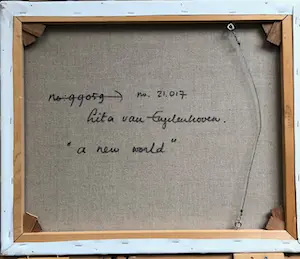 no. 99059 no. 21.017
Lita van Engelenhoven.
"a new world"